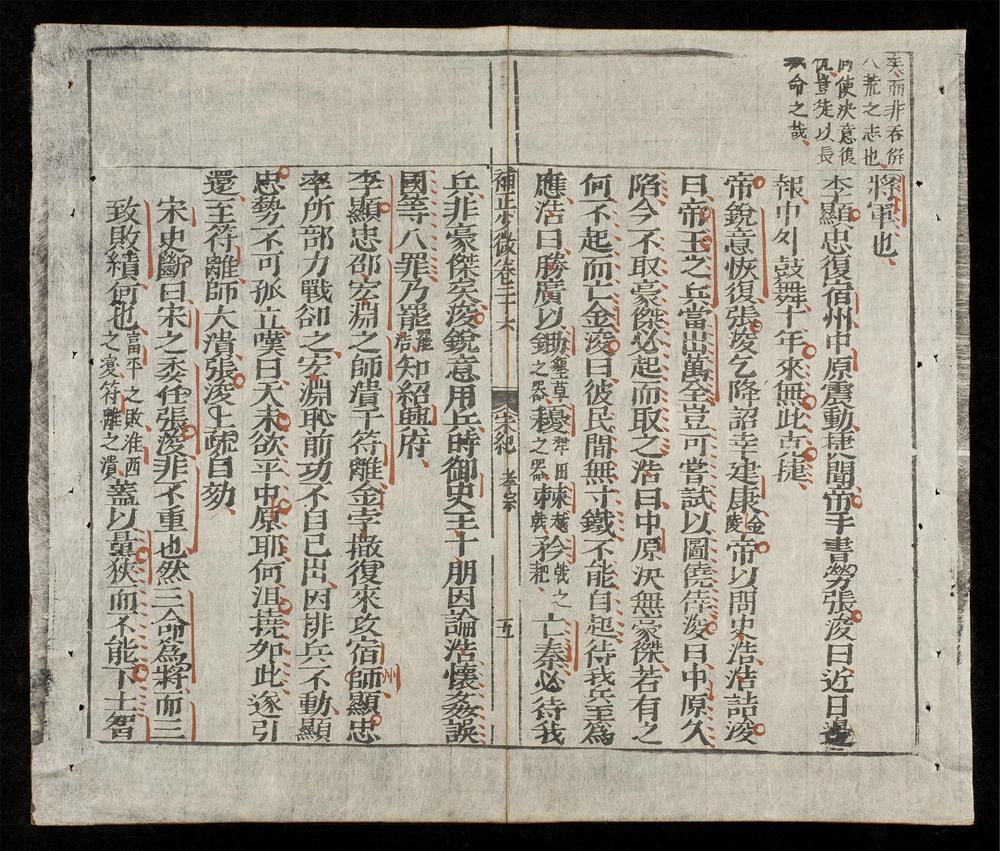 矣而非吞併
八荒之志也
使決意復
豈徒以長
命之哉
將軍也
李顯忠復宿州中原震動捷聞帝手書勞張浚曰近日邊
報中外鼓舞十年來無此克捷
帝銳意恢復張浚乞降詔幸建康金陵帝以問史浩浩詰浚
曰帝王之兵當出萬全豈可嘗試以圖僥倖浚曰中原久
陷今不取豪傑必起而取之浩曰中原決無豪傑若有之
何不起而亡金浚曰彼民間無寸鐵不能自起待我兵至為
應浩曰勝廣以鋤墾草之器耰之器棘矜亡秦必待我
補正少微卷三十六
宋紀
孝宗
五
兵非豪傑矣浚銳意用兵時御史王十朋因論浩懷姦誤
國等八罪乃罷罷浩知紹興府
李顯忠邵宏淵之師潰于符離金孛撒復來攻宿州師顯忠
率所部力戰卻之宏淵恥前功不自己出因排兵不動顯
忠勢不可孤立嘆曰天未欲平中原耶何沮撓如此遂引
還至符離師大潰張浚上疏自劾
宋史斷曰宋之委任張浚非不重也然三命為將而三
致敗績何也富平之敗淮西之變符離之潰蓋以量狹而不能下士智